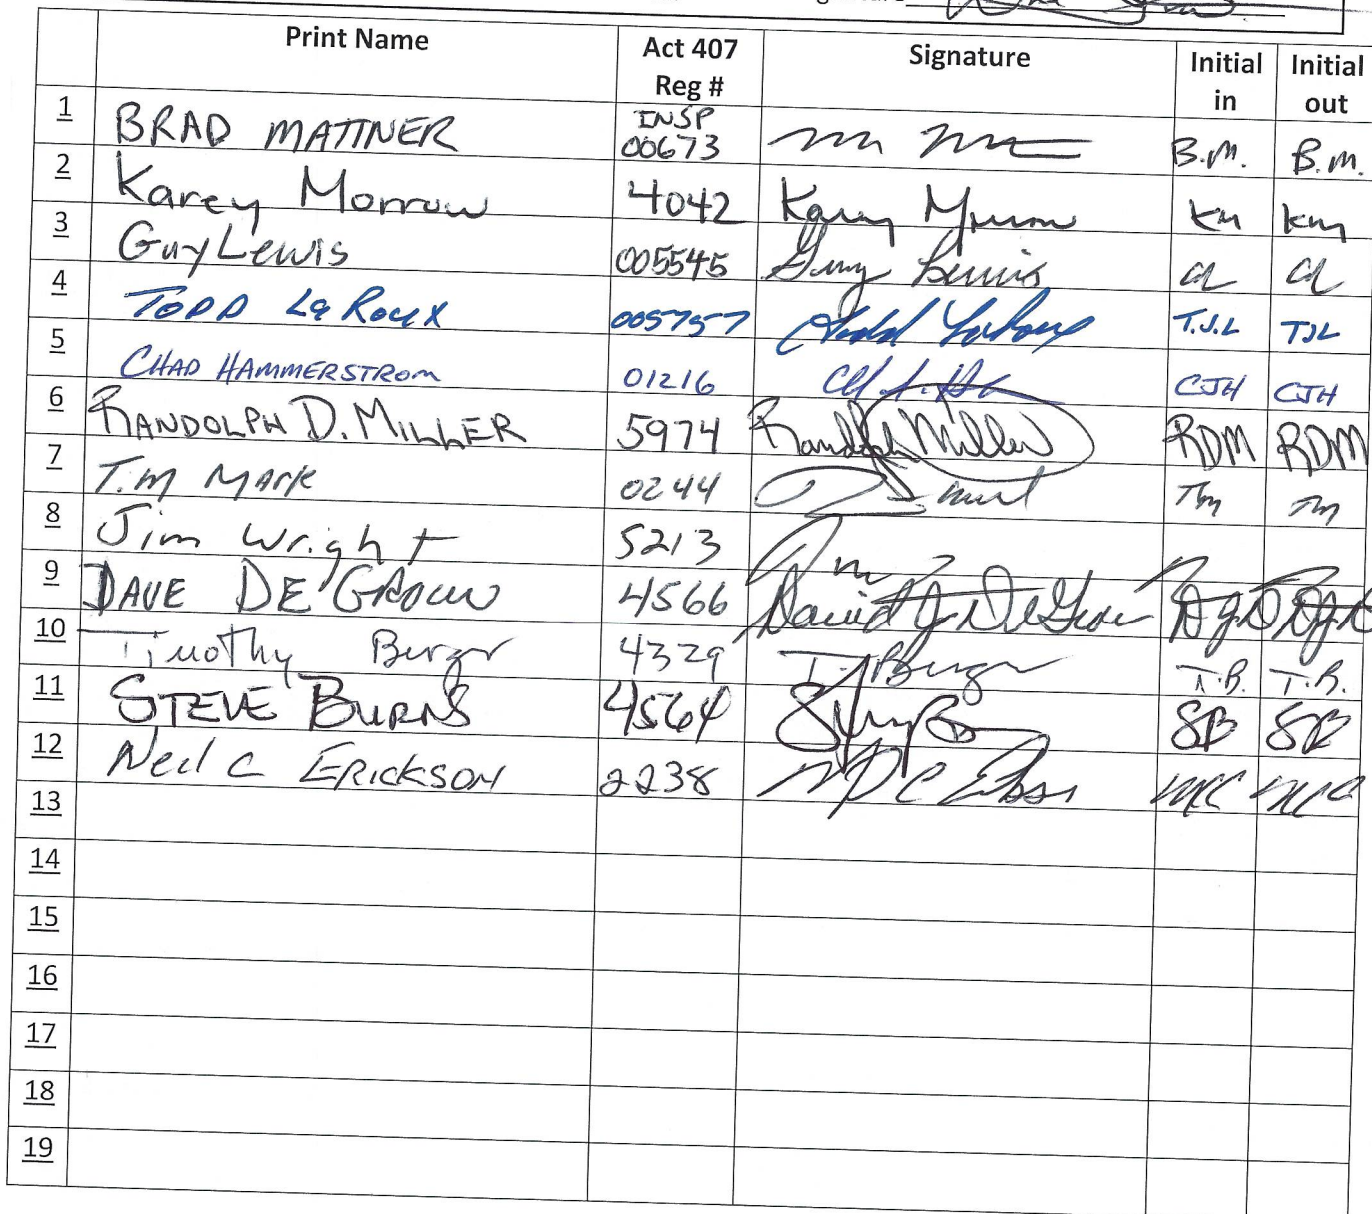 Print Name Act 407 Reg # Signature Initial in Initial out
1 BRAD MATTNER INSP 00673 B.M. B.M.
2 Karey Morrow 4042 Karey Morrow KM KM
3 Guy Lewis 005545 Guy Lewis GL GL
4 TODD LaRoux 005757 Todd LaRoux T.J.L TJL
5 CHAD HAMMERSTROM 01216 CJH CJH
6 RANDOLPH D. MILLER 5974 Randolph Miller RDM RDM
7 Tim MARK 0244 TM TM
8 Jim Wright 5213
9 DAVE DE GROUW 4566 David J. DJD DJD
10 Timothy Burger 4329 T. Burger T.B. T.B.
11 STEVE BURNS 4564 SB SB
12 Neil C ERICKSON 2238
13
14
15
16
17
18
19